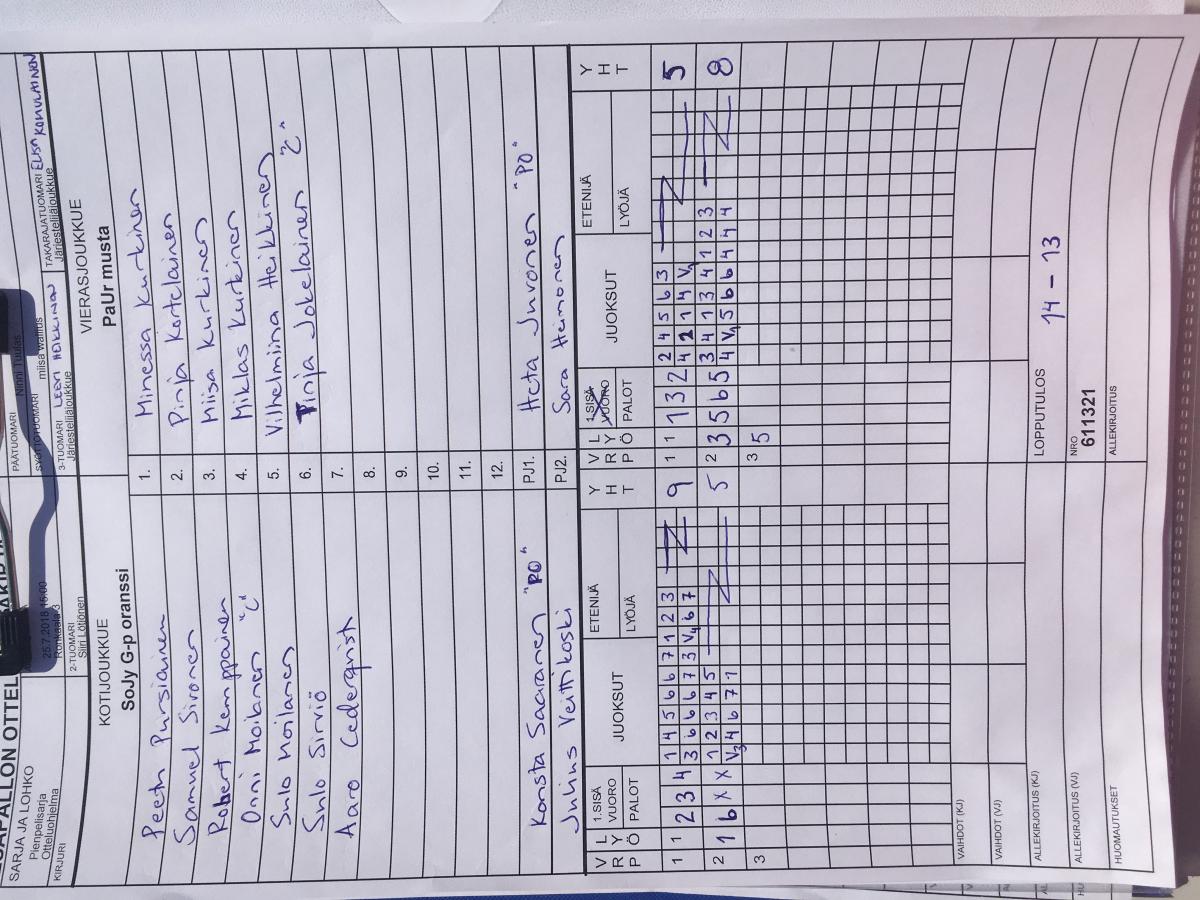 SARJA JA LOHKO
Pienpelisarja
Otteluohjelma
KIRJURI
25.7.2018 15:00
2-TUOMARI
Siiri Löijönen
PÄÄTUOMARI
Ninni Tuulas
SYÖTTÖTUOMARI
miisa wallius
3-TUOMARI LEENI HEIKKINEN
Järjestelijäjoukkue
TAKARAJATUOMARI ELISA KONULAINEN
Järjestelijäjoukkue
KOTIJOUKKUE VIERASJOUKKUE
SoJy G-p oranssi PaUr musta
Peetu Pursiainen 1. Minessa Kurkinen
Samuel Sironen 2. Pinja Kortelainen
Robert Kemppainen 3. Miisa Kurkinen
Onni Moilanen "C" 4. Miklas Kurkinen
Sulo Moilanen 5. Vilhelmiina Heikkinen
Sulo Sirviö 6. Tinja Jokelainen "C"
Aaro Cederqvist 7.
8.
9.
10.
11.
12.
Konsta Saaranen "PO" PJ1. Heta Juvonen "PO"
Julius Veitikoski PJ2. Sara Heimonen
V R P L Y Ö 1.SISÄ VUORO PALOT JUOKSUT ETENIJÄ LYÖJÄ Y H T V R P L Y Ö 1.SISÄ VUORO PALOT JUOKSUT ETENIJÄ LYÖJÄ Y H T
1 1 2 3 4 1 4 5 6 6 7 1 2 3 9 1 1 1 3 2 2 4 5 6 3 5
3 6 6 6 7 3 V4 6 7 4 2 1 4 V1
2 1 6 X X 1 2 3 4 5 5 2 3 5 6 5 3 4 1 3 4 1 2 3 8
V3 4 6 7 1 4 V1 5 6 6 4 4 4
3 3 5
VAIHDOT (KJ)
VAIHDOT (VJ)
ALLEKIRJOITUS (KJ) LOPPUTULOS 14 - 13
ALLEKIRJOITUS (VJ) NRO 611321
HUOMAUTUKSET ALLEKIRJOITUS